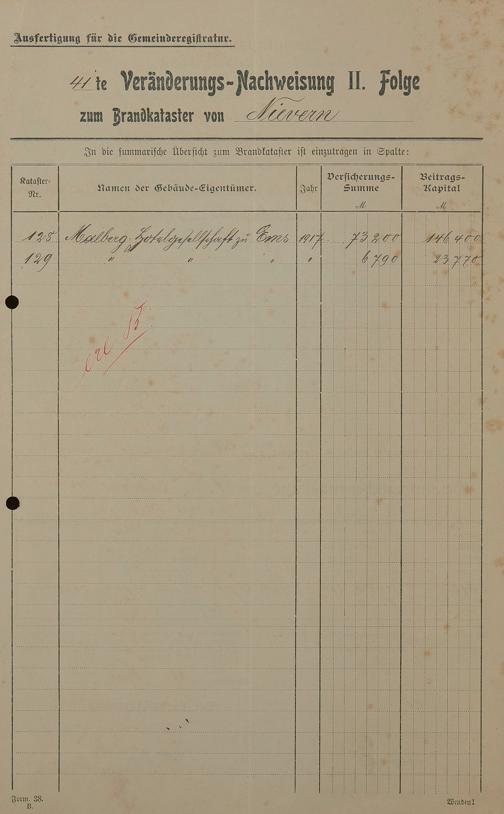 Ausfertigung für die Gemeinderegistratur.
41te Veränderungs-Nachweisung II. Folge
zum Brandkataster von Nievern
In die summarische Übersicht zum Brandkataster ist einzutragen in Spalte:
Kataster-Nr. Namen der Gebäude-Eigentümer. Jahr Versicherungs-Summe M Beitrags-Kapital M
125 Malberg-Hotelgesellschaft zu Ems 1917 73200 146400
129 " " " " 6790 23770
Form. 28. B.
Wenden!